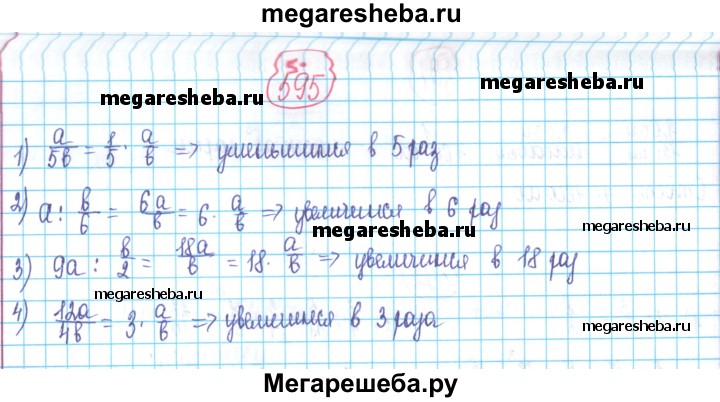 megaresheba.ru
595
megaresheba.ru
megaresheba.ru
1) a/5b = 1/5 · a/b => уменьшится в 5 раз
2) a : b/6 = 6a/b = 6 · a/b => увеличится в 6 раз
megaresheba.ru
megaresheba.ru
3) 9a : b/2 = 18a/b = 18 · a/b => увеличится в 18 раз
megaresheba.ru
4) 12a/4b = 3 · a/b => увеличится в 3 раза
megaresheba.ru
Мегарешеба.ру